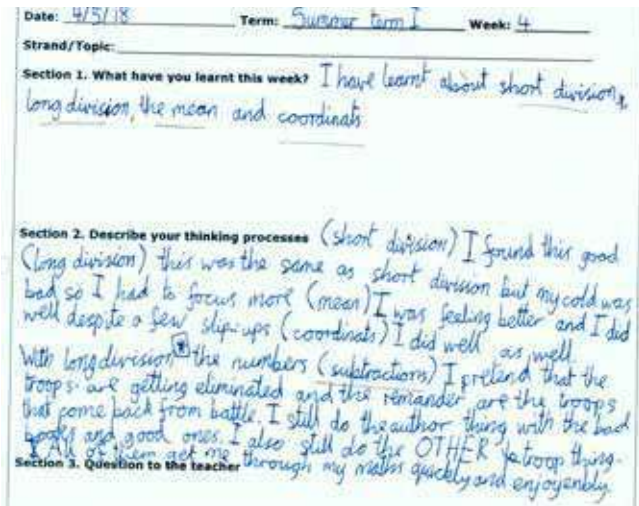 Date: 4/5/18 Term: Summer term 1 Week: 4
Strand/Topic:
Section 1. What have you learnt this week? I have learnt about short division,
long division, the mean and coordinats
Section 2. Describe your thinking processes (short division) I found this good
(long division) this was the same as short division but my cold was
bad so I had to focus more (mean) I was feeling better and I did
well despite a few slip-ups (coordinats) I did well as well.
With long division the numbers (subtractions) I pretend that the
troops are getting eliminated and the remander are the troops
that come back from battle. I still do the author thing with the bad
books and good ones. I also still do the OTHER troop thing.
All of them get me through my maths quickly and enjoyenbly.
Section 3. Question to the teacher